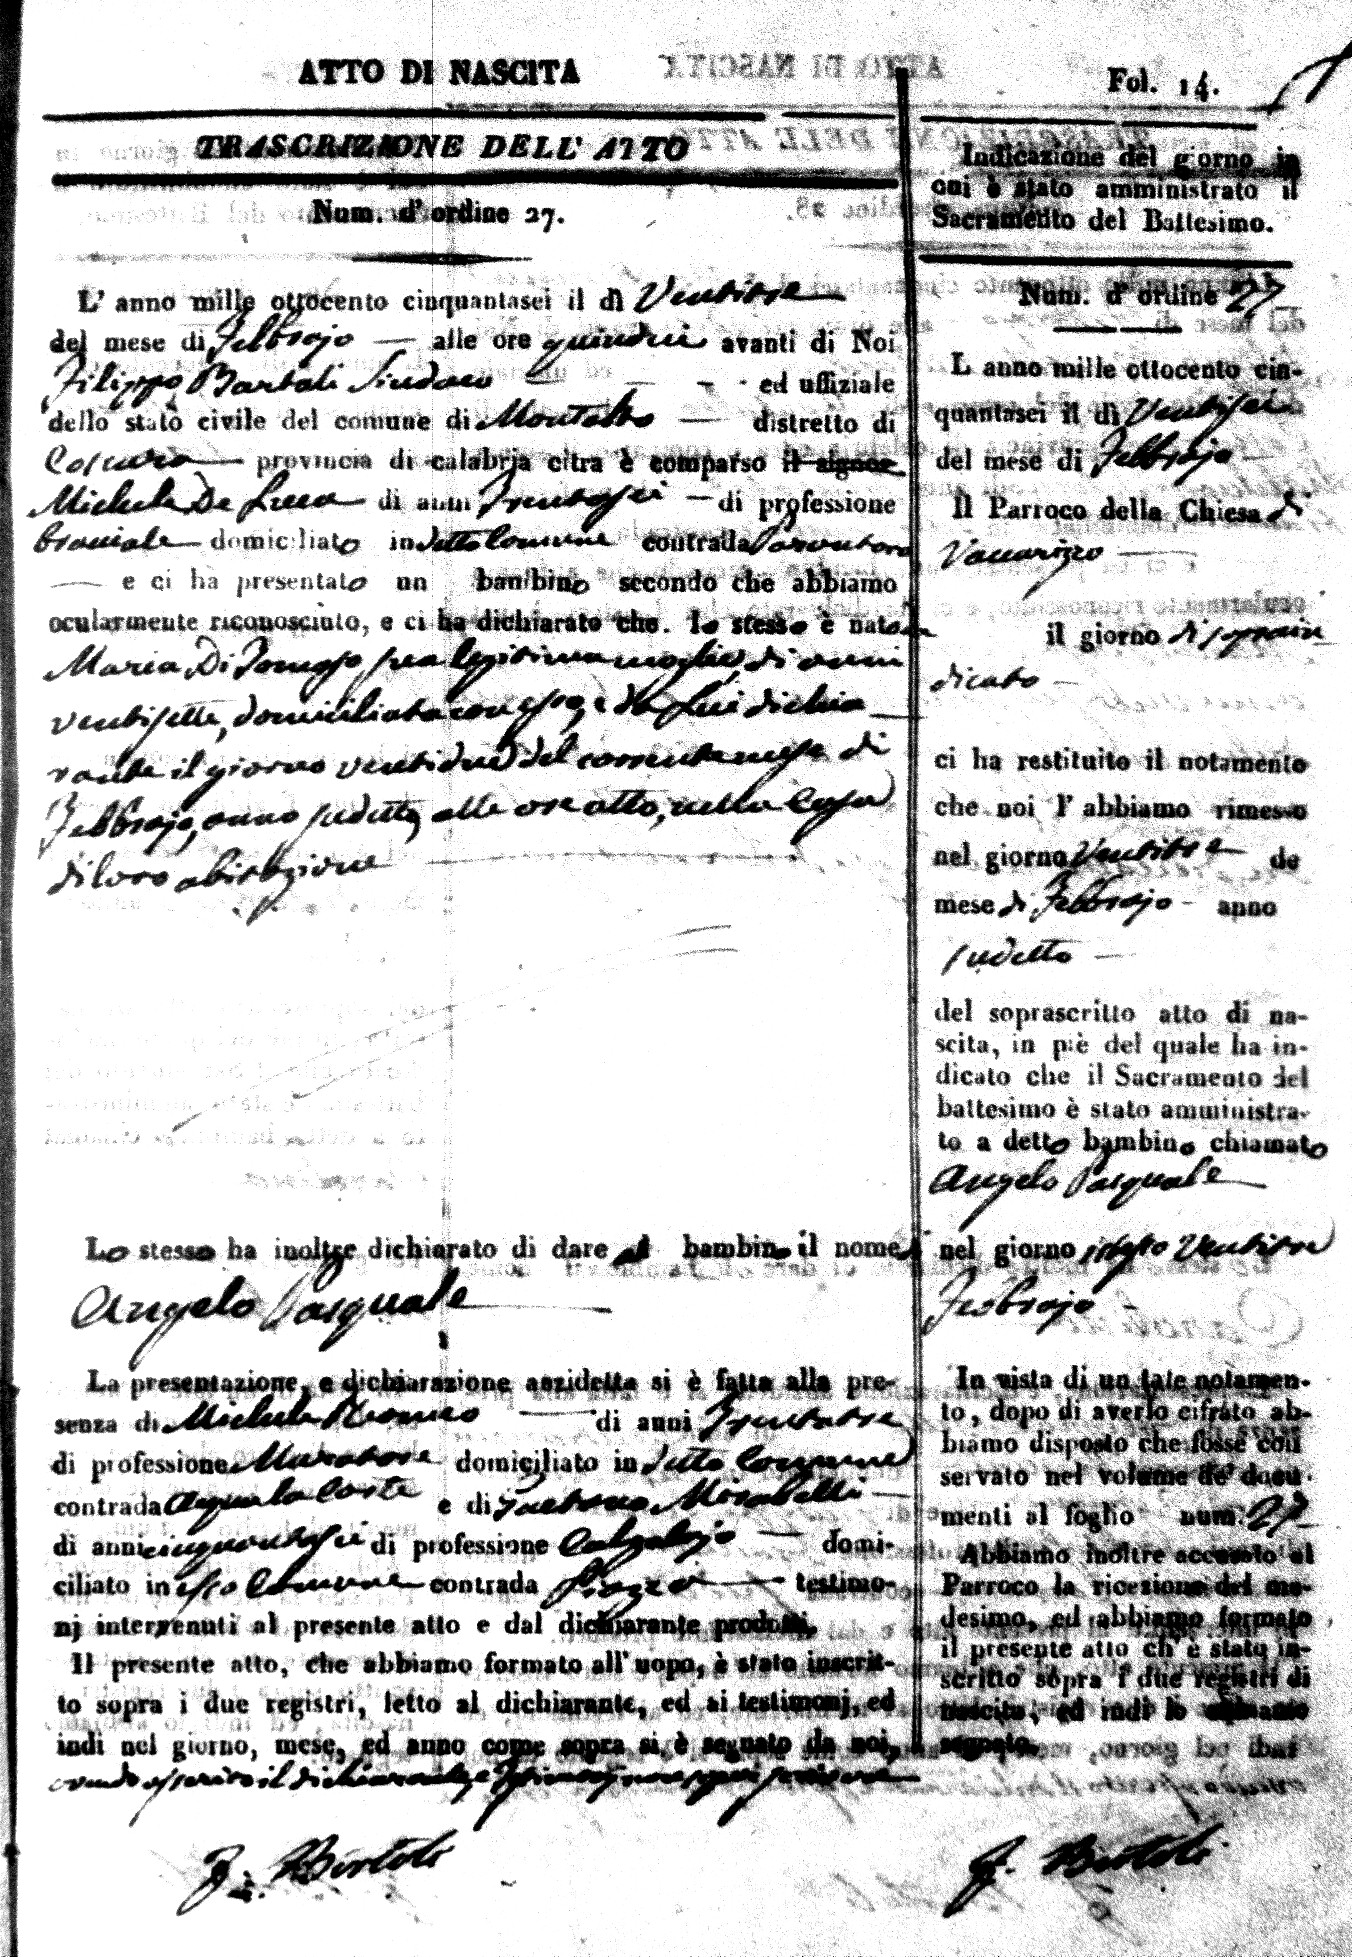 ATTO DI NASCITA
Fol. 14.
TRASCRIZIONE DELL' ATTO
Num. d' ordine 27.
L' anno mille ottocento cinquantasei il dì Ventitre
del mese di Febbrajo — alle ore quindici avanti di Noi
Filippo Bartoli Sindaco — ed uffiziale
dello stato civile del comune di Montalto — distretto di
Cosenza — provincia di calabria citra è comparso il signor
Michele De Luca — di anni Trentasei — di professione
braciale — domiciliato in detto Comune contrada
— e ci ha presentato un bambino secondo che abbiamo
ocularmente riconosciuto, e ci ha dichiarato che. lo stesso è nato da
Maria Di Tomaso sua legittima moglie di anni
ventisette, domiciliata con esso, e da Lui dichia
rante il giorno ventidue del corrente mese di
Febbrajo, anno sudetto, alle ore otto, nella Casa
di loro abitazione
Lo stesso ha inoltre dichiarato di dare al bambino il nome di
Angelo Pasquale
La presentazione, e dichiarazione anzidetta si è fatta alla pre-
senza di Michele — di anni Trentatre
di professione Muratore domiciliato in detto Comune
contrada Acqua la Costa e di Gaetano Mirabelli —
di anni cinquantasei di professione Calzolajo — domi-
ciliato in esso Comune contrada Piazza — testimo-
nj intervenuti al presente atto e dal dichiarante prodotti.
Il presente atto, che abbiamo formato all' uopo, è stato inscrit-
to sopra i due registri, letto al dichiarante, ed ai testimonj, ed
indi nel giorno, mese, ed anno come sopra si è segnato da noi,
avendo asserito il dichiarante, e Testimonj non saper scrivere
F. Bartoli
Indicazione del giorno in
cui è stato amministrato il
Sacramento del Battesimo.
Num. d' ordine 27
L anno mille ottocento cin-
quantasei il dì Ventisei
del mese di Febbrajo —
Il Parroco della Chiesa di
Vaccarizzo —
il giorno di soprain
dicato —
ci ha restituito il notamento
che noi l' abbiamo rimesso
nel giorno Ventitre — de
mese di Febbrajo - anno
sudetto —
del soprascritto atto di na-
scita, in piè del quale ha in-
dicato che il Sacramento del
battesimo è stato amministra-
to a detto bambino chiamato
Angelo Pasquale
nel giorno Ventitre
Febbrajo -
In vista di un tale notamen-
to, dopo di averlo cifrato ab-
biamo disposto che fosse con
servato nel volume de' docu-
menti al foglio num. 27
Abbiamo inoltre accusato al
Parroco la ricezione del me-
desimo, ed abbiamo formato
il presente atto ch' è stato in-
scritto sopra i due registri di
nascita, ed indi lo abbiamo
segnato.
F. Bartoli